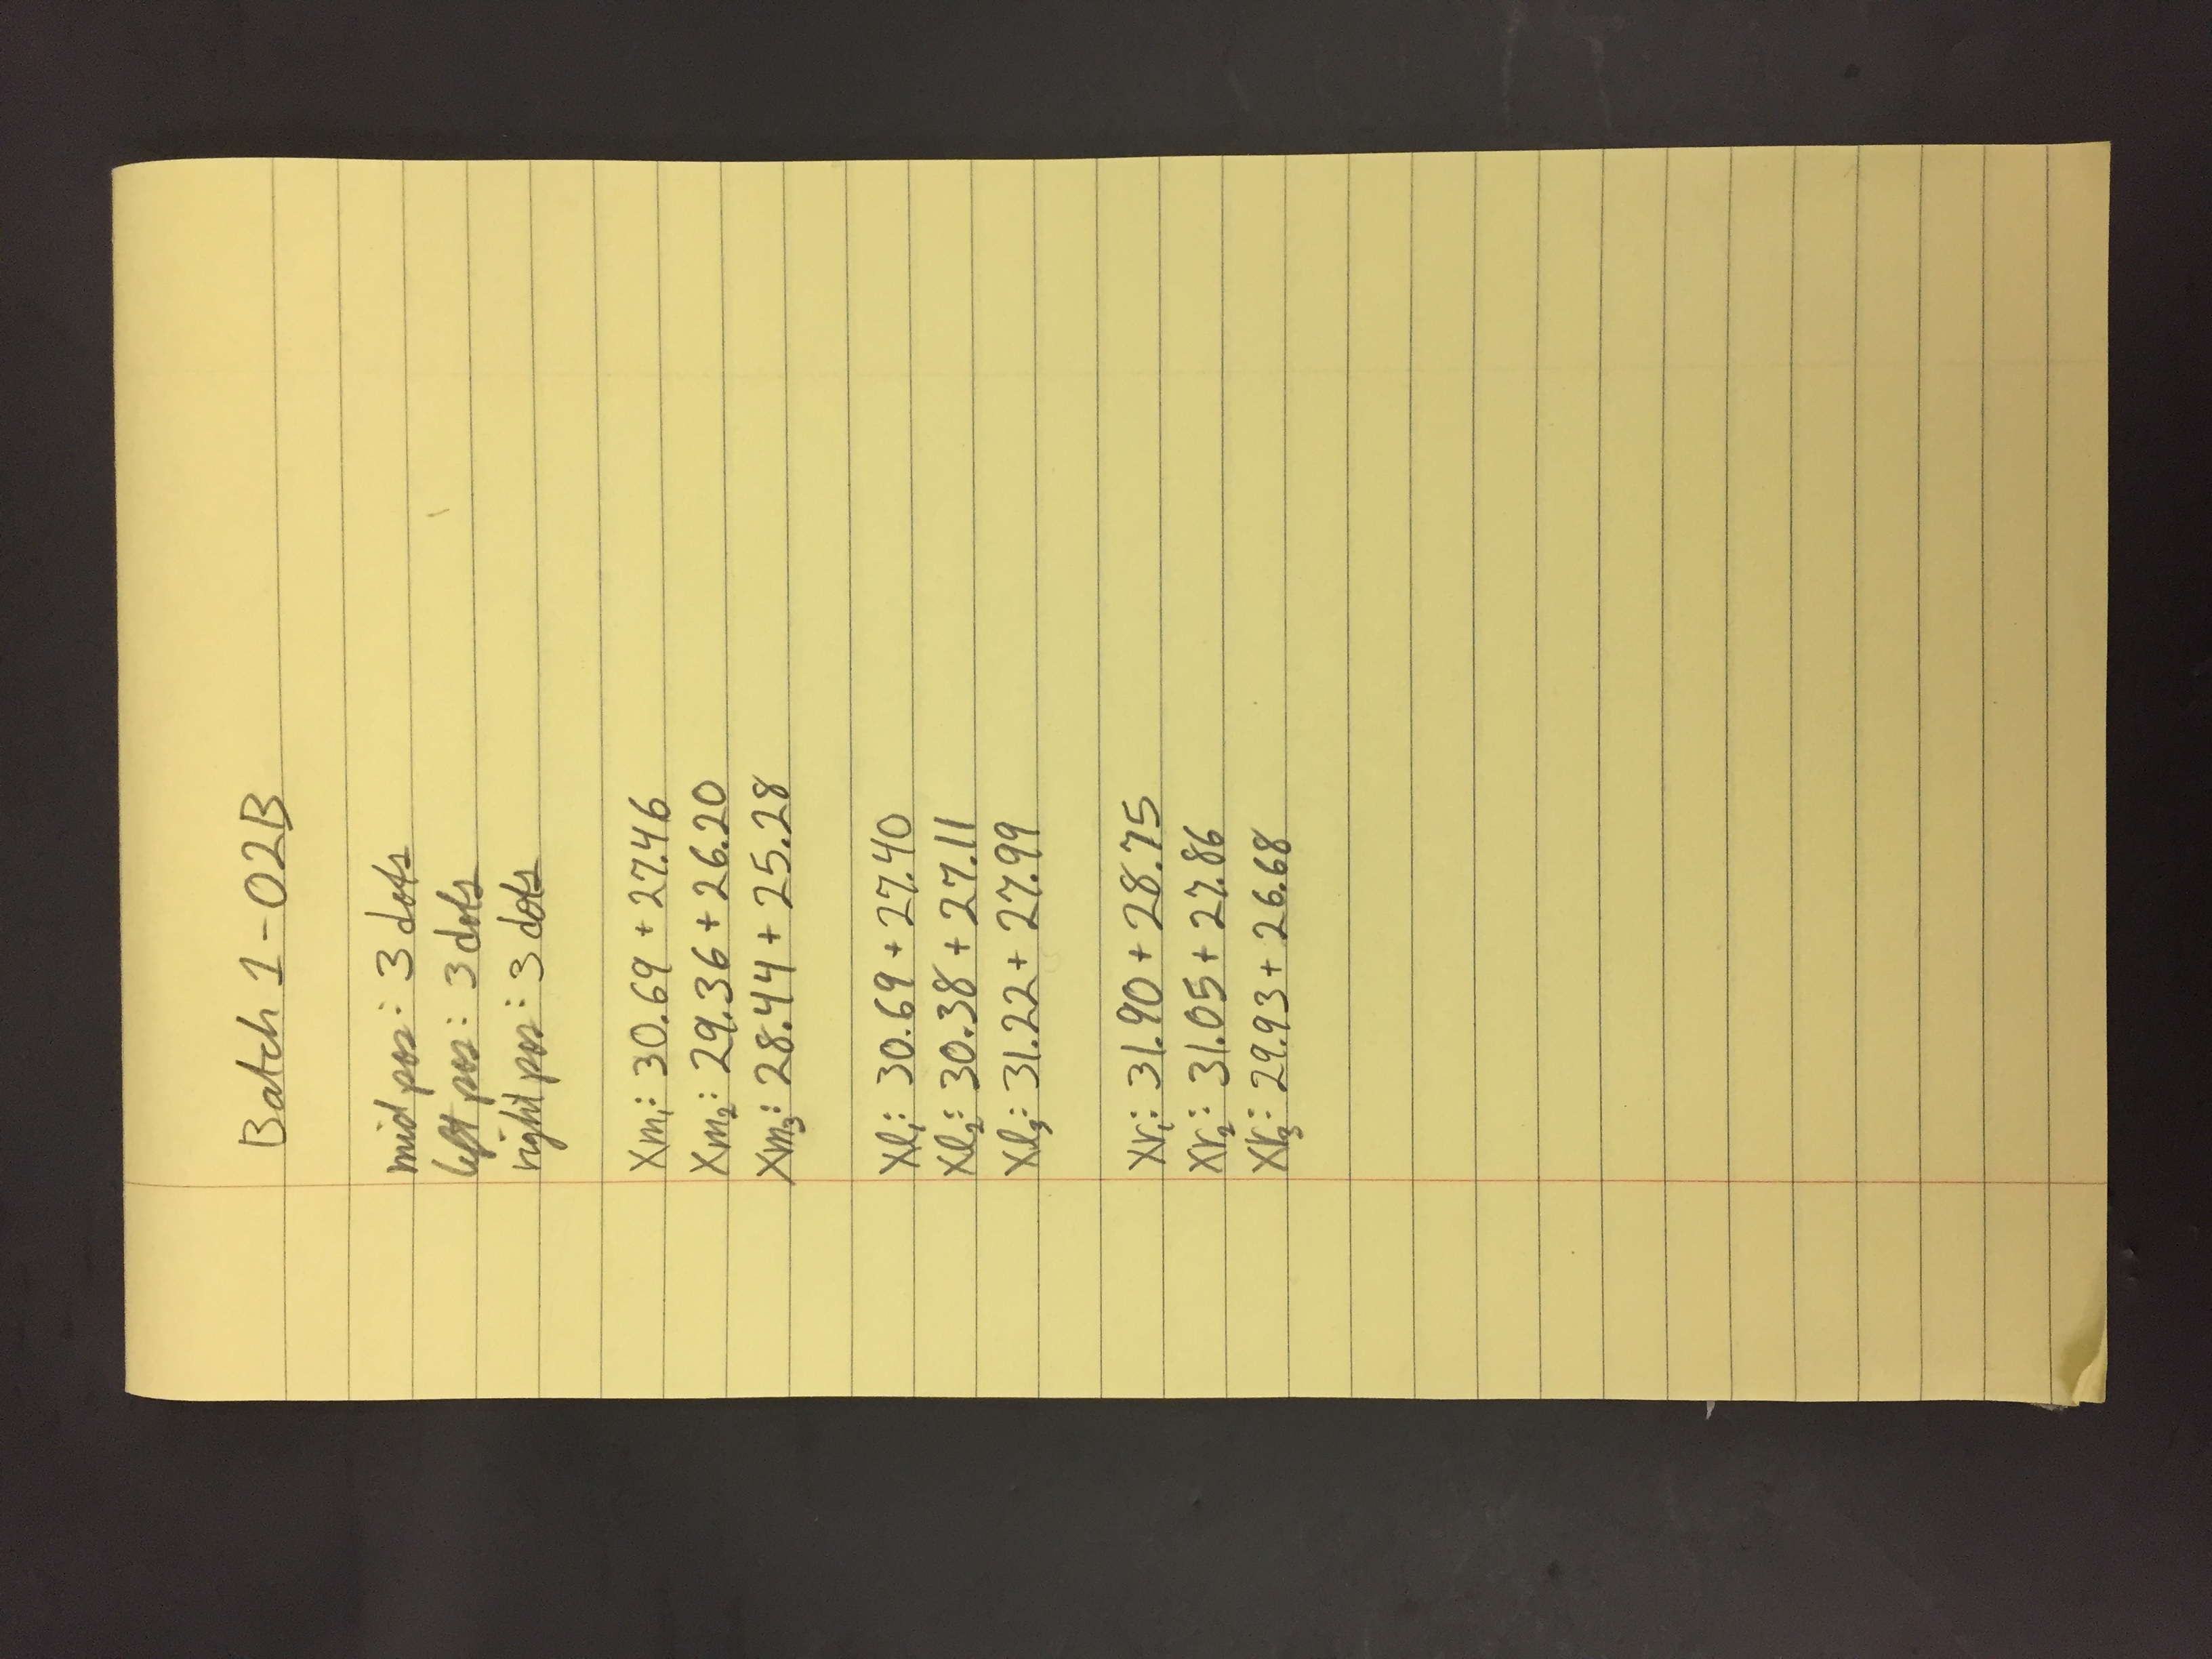 Batch 1-02B
mid pos: 3 dots
left pos: 3 dots
right pos: 3 dots
Xm₁: 30.69 + 27.46
Xm₂: 29.36 + 26.20
Xm₃: 28.44 + 25.28
Xl₁: 30.69 + 27.40
Xl₂: 30.38 + 27.11
Xl₃: 31.22 + 27.99
Xr₁: 31.90 + 28.75
Xr₂: 31.05 + 27.86
Xr₃: 29.93 + 26.68